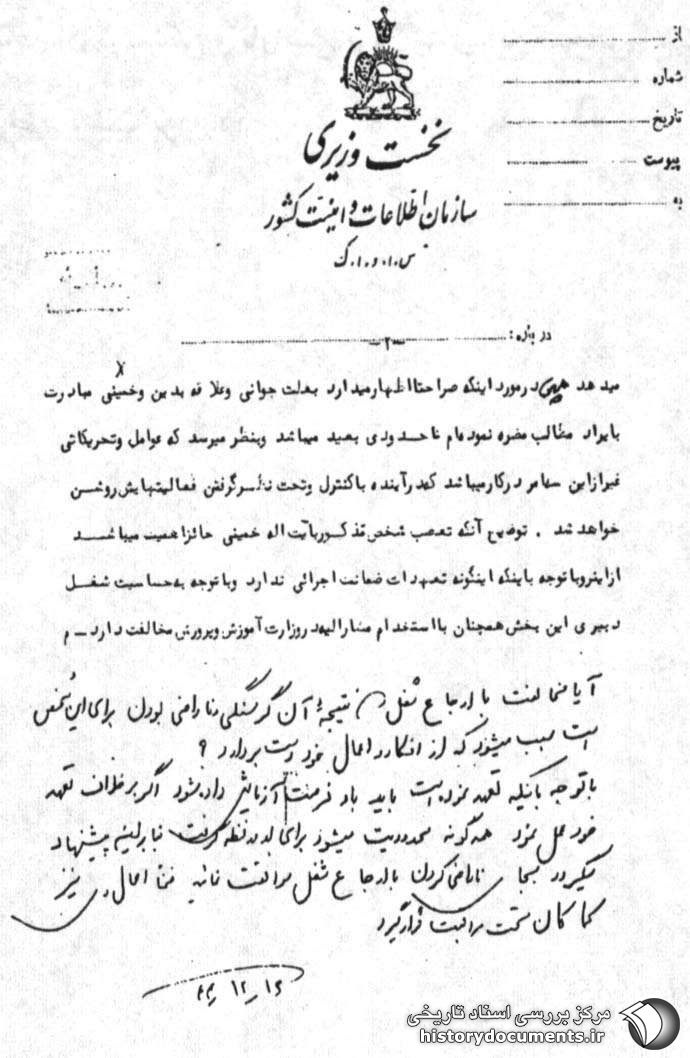 از
شماره
تاریخ
پیوست
به
نخست وزیری
سازمان اطلاعات و امنیت کشور
س.ا.و.ا.ک
در باره :
-۲-
میدهد در مورد اینکه صراحتا اظهار میدارد بعلت جوانی وعلاقه بدین وخمینی مبادرت
بایراد مطالب مضره نموده‌ام تاحدودی بعید میباشد وبنظر میرسد که عوامل وتحریکاتی
غیرازاین در کارمیباشد که در آینده باکنترل وتحت نظر گرفتن فعالیتهایش روشن
خواهد شد . توضیح آنکه تعصب شخص مذکور بآیت اله خمینی حائز اهمیت میباشد
ازاینرو با توجه باینکه اینگونه تعهدات ضمانت اجرائی ندارد وبا توجه به حساسیت شغل
دبیری این بخش همچنان با استخدام مشارالیه در وزارت آموزش وپرورش مخالفت دارد - م
آیا مخالفت با ارجاع شغل که نتیجه آن گرسنگی و ناراضی بودن برای این شخص
است سبب میشود که از افکار و اعمال خود دست بردارد ؟
باتوجه باینکه تعهد نموده است باید باو فرصت آزمایش داده شود اگر برخلاف تعهد
خود عمل نمود همه گونه محدودیت میشود برای او در نظر گرفت بنابراین پیشنهاد
میگردد بجای ناراضی کردن با ارجاع شغل موافقت نمائید ضمنا اعمال وی نیز
کماکان تحت مراقبت قرار گیرد
۱۲/۱۶
مرکز بررسی اسناد تاریخی
historydocuments.ir